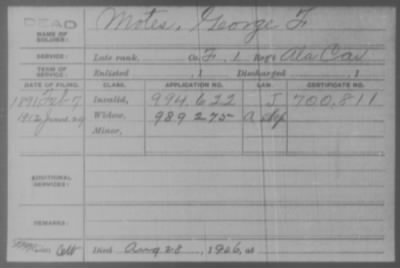 DEAD
NAME OF SOLDIER: Motes, George F
SERVICE: Late rank, Co. F, 1 Reg't Ala Cav
TERM OF SERVICE: Enlisted , 1 Discharged , 1
DATE OF FILING. CLASS. APPLICATION NO. LAW. CERTIFICATE NO.
1891 Feb 7 Invalid, 994.622 J 700.811
1912 June 29 Widow, 989275 a
Minor,
ADDITIONAL SERVICES:
REMARKS:
Died Aug 28, 1906, at